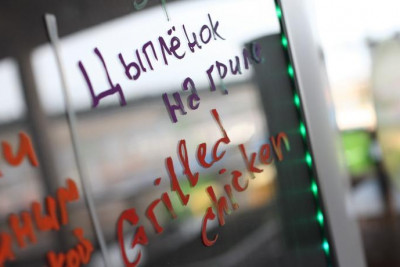 Цыплёнок
на гриле
Grilled
chicken